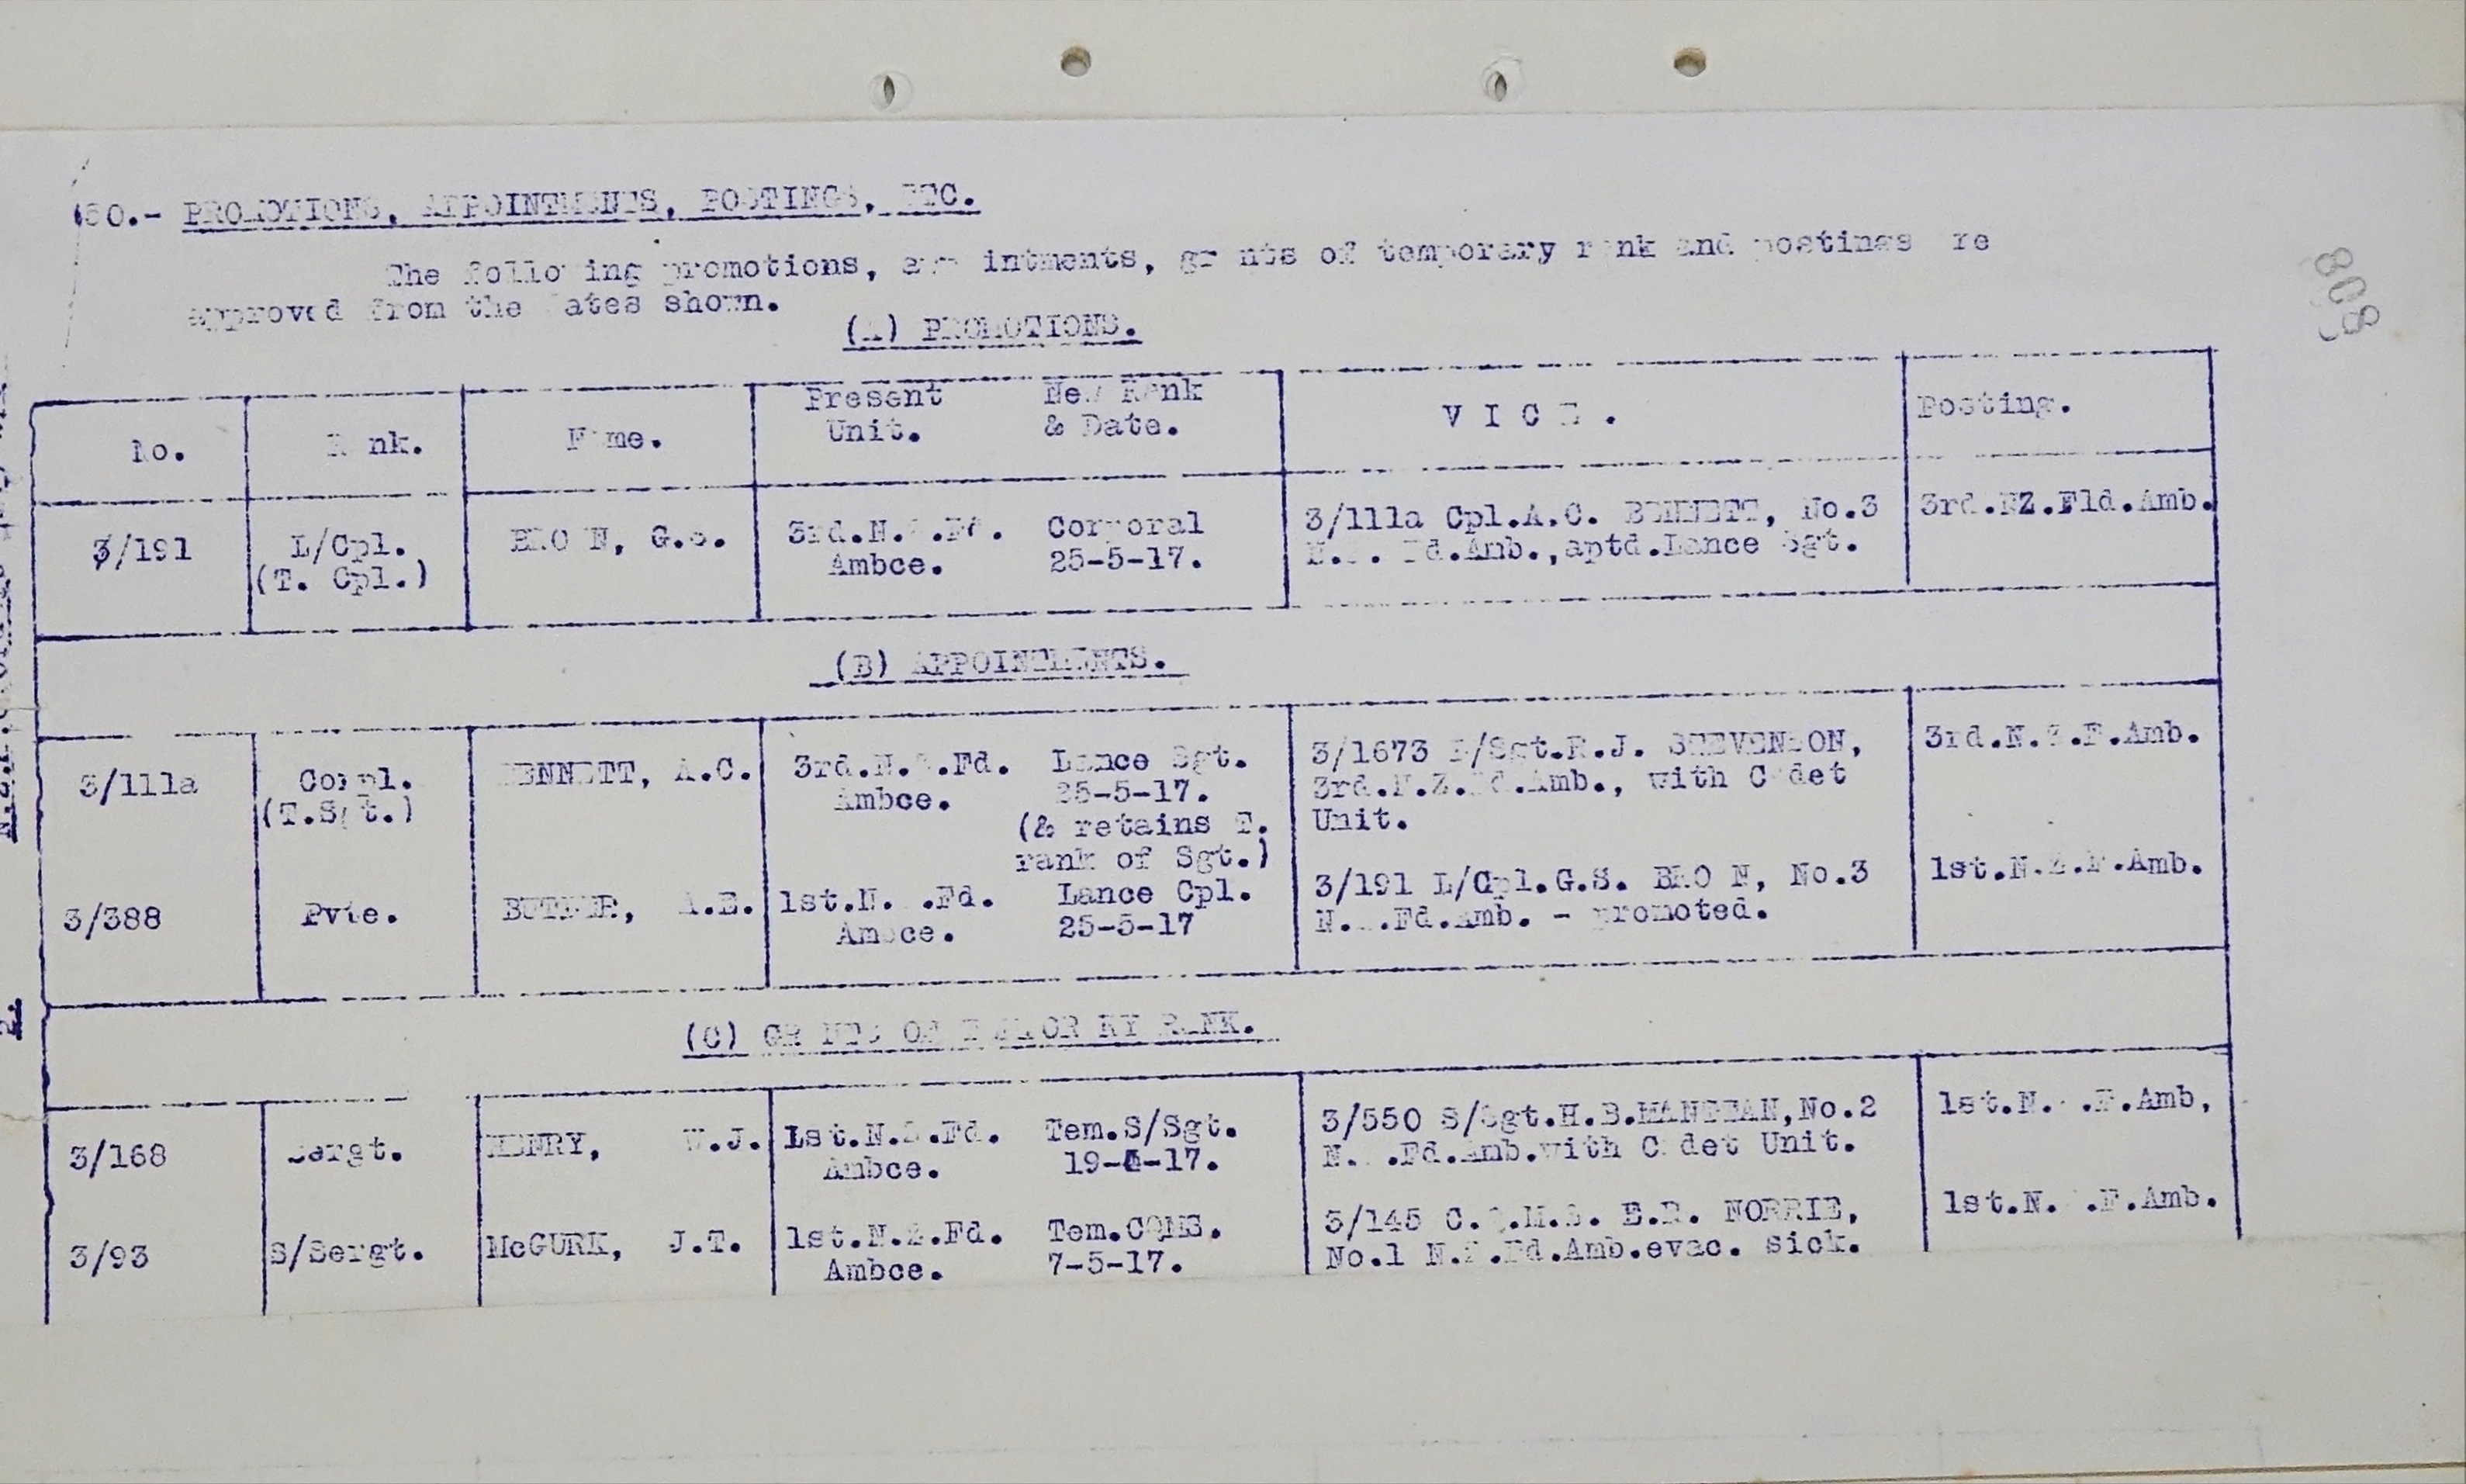 PROMOTIONS, APPOINTMENTS, POSTINGS, ETC.
The following promotions, appointments, grants of temporary rank and postings are
approved from the dates shown.
808
(A) PROMOTIONS.
No. Rank. Name. Present Unit. New Rank & Date. V I C E . Posting.
3/191 L/Cpl. BROWN, G.S. 3rd.N.Z.Fd. Corporal 3/111a Cpl.A.C. BENNETT, No.3 3rd.NZ.Fld.Amb.
(T. Cpl.) Ambce. 25-5-17. N.Z. Fd.Amb.,aptd.Lance Sgt.
(B) APPOINTMENTS.
3/111a Corpl. BENNETT, A.C. 3rd.N.Z.Fd. Lance Sgt. 3/1673 L/Sgt.R.J. STEVENSON, 3rd.N.Z.F.Amb.
(T.Sgt.) Ambce. 25-5-17. 3rd.N.Z.Fd.Amb., with Cadet
(& retains T. Unit.
rank of Sgt.)
3/388 Pvte. BUTLER, A.E. 1st.N.Z.Fd. Lance Cpl. 3/191 L/Cpl.G.S. BROWN, No.3 1st.N.Z.F.Amb.
Ambce. 25-5-17 N.Z.Fd.Amb. - promoted.
(C) GRANTS OF TEMPORARY RANK.
3/168 Sergt. HENRY, W.J. 1st.N.Z.Fd. Tem.S/Sgt. 3/550 S/Sgt.H.B. No.2 1st.N.Z.F.Amb,
Ambce. N.Z.Fd.Amb.with Cadet Unit.
3/93 S/Sergt. McGURK, J.T. 1st.N.Z.Fd. Tem.CQMS. 3/145 C.Q.M.S. E.R. NORRIE, 1st.N.Z.F.Amb.
Ambce. 7-5-17. No.1 N.Z.Fd.Amb.evac. sick.
2.